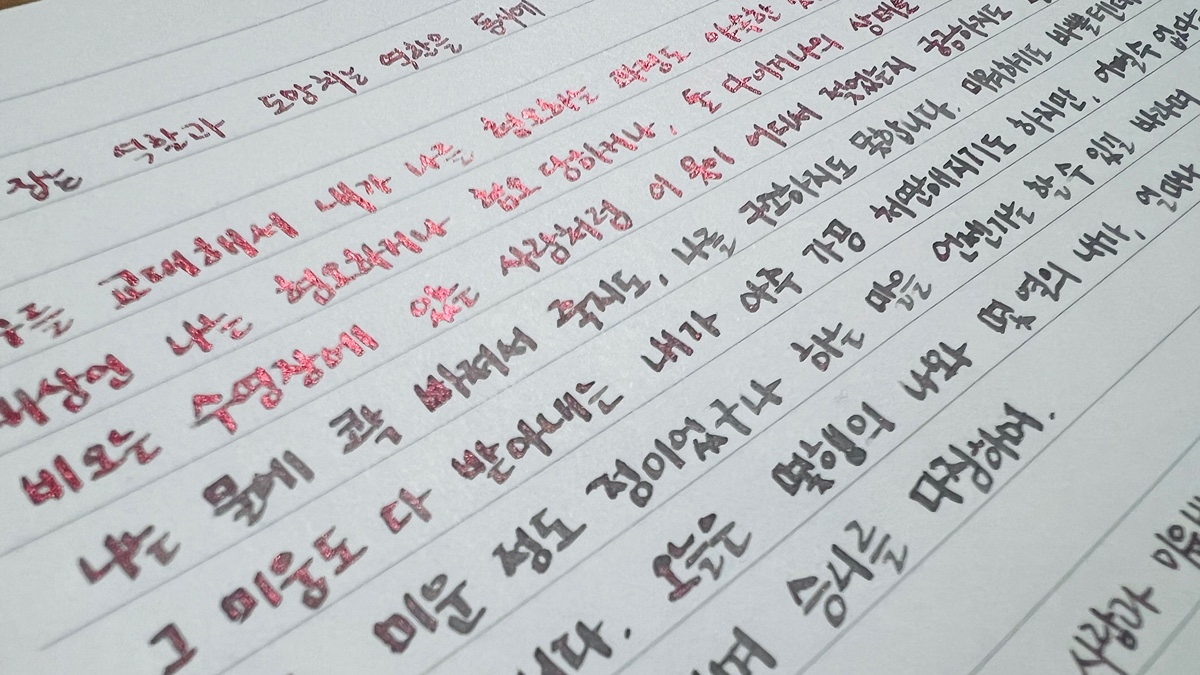 잡는 역할과 도망치는 역할을 동시에
교대해서 내가 나를 혐오하는 과정도 아득한
나는 혐오하거나 혐오 당하거나, 둘 다이거나의 상태로
비오는 수영장에 있는 사람처럼 이 옷이 어디서 젖었는지 궁금하지도
나는 물에 콱 빠져서 죽지도, 나를 구원하지도 못합니다. 미워하는데도 바쁠테니
그 미움도 다 받아내는 내가 아주 가끔 처연해지기도 하지만, 어쩔수 없다
미운 정도 정이었구나 하는 말을 언젠가는 할 수 있길 바라며
니다. 오늘은 몇행의 나와 몇 열의 내가,
며 승니를 다짐하며.
사람과